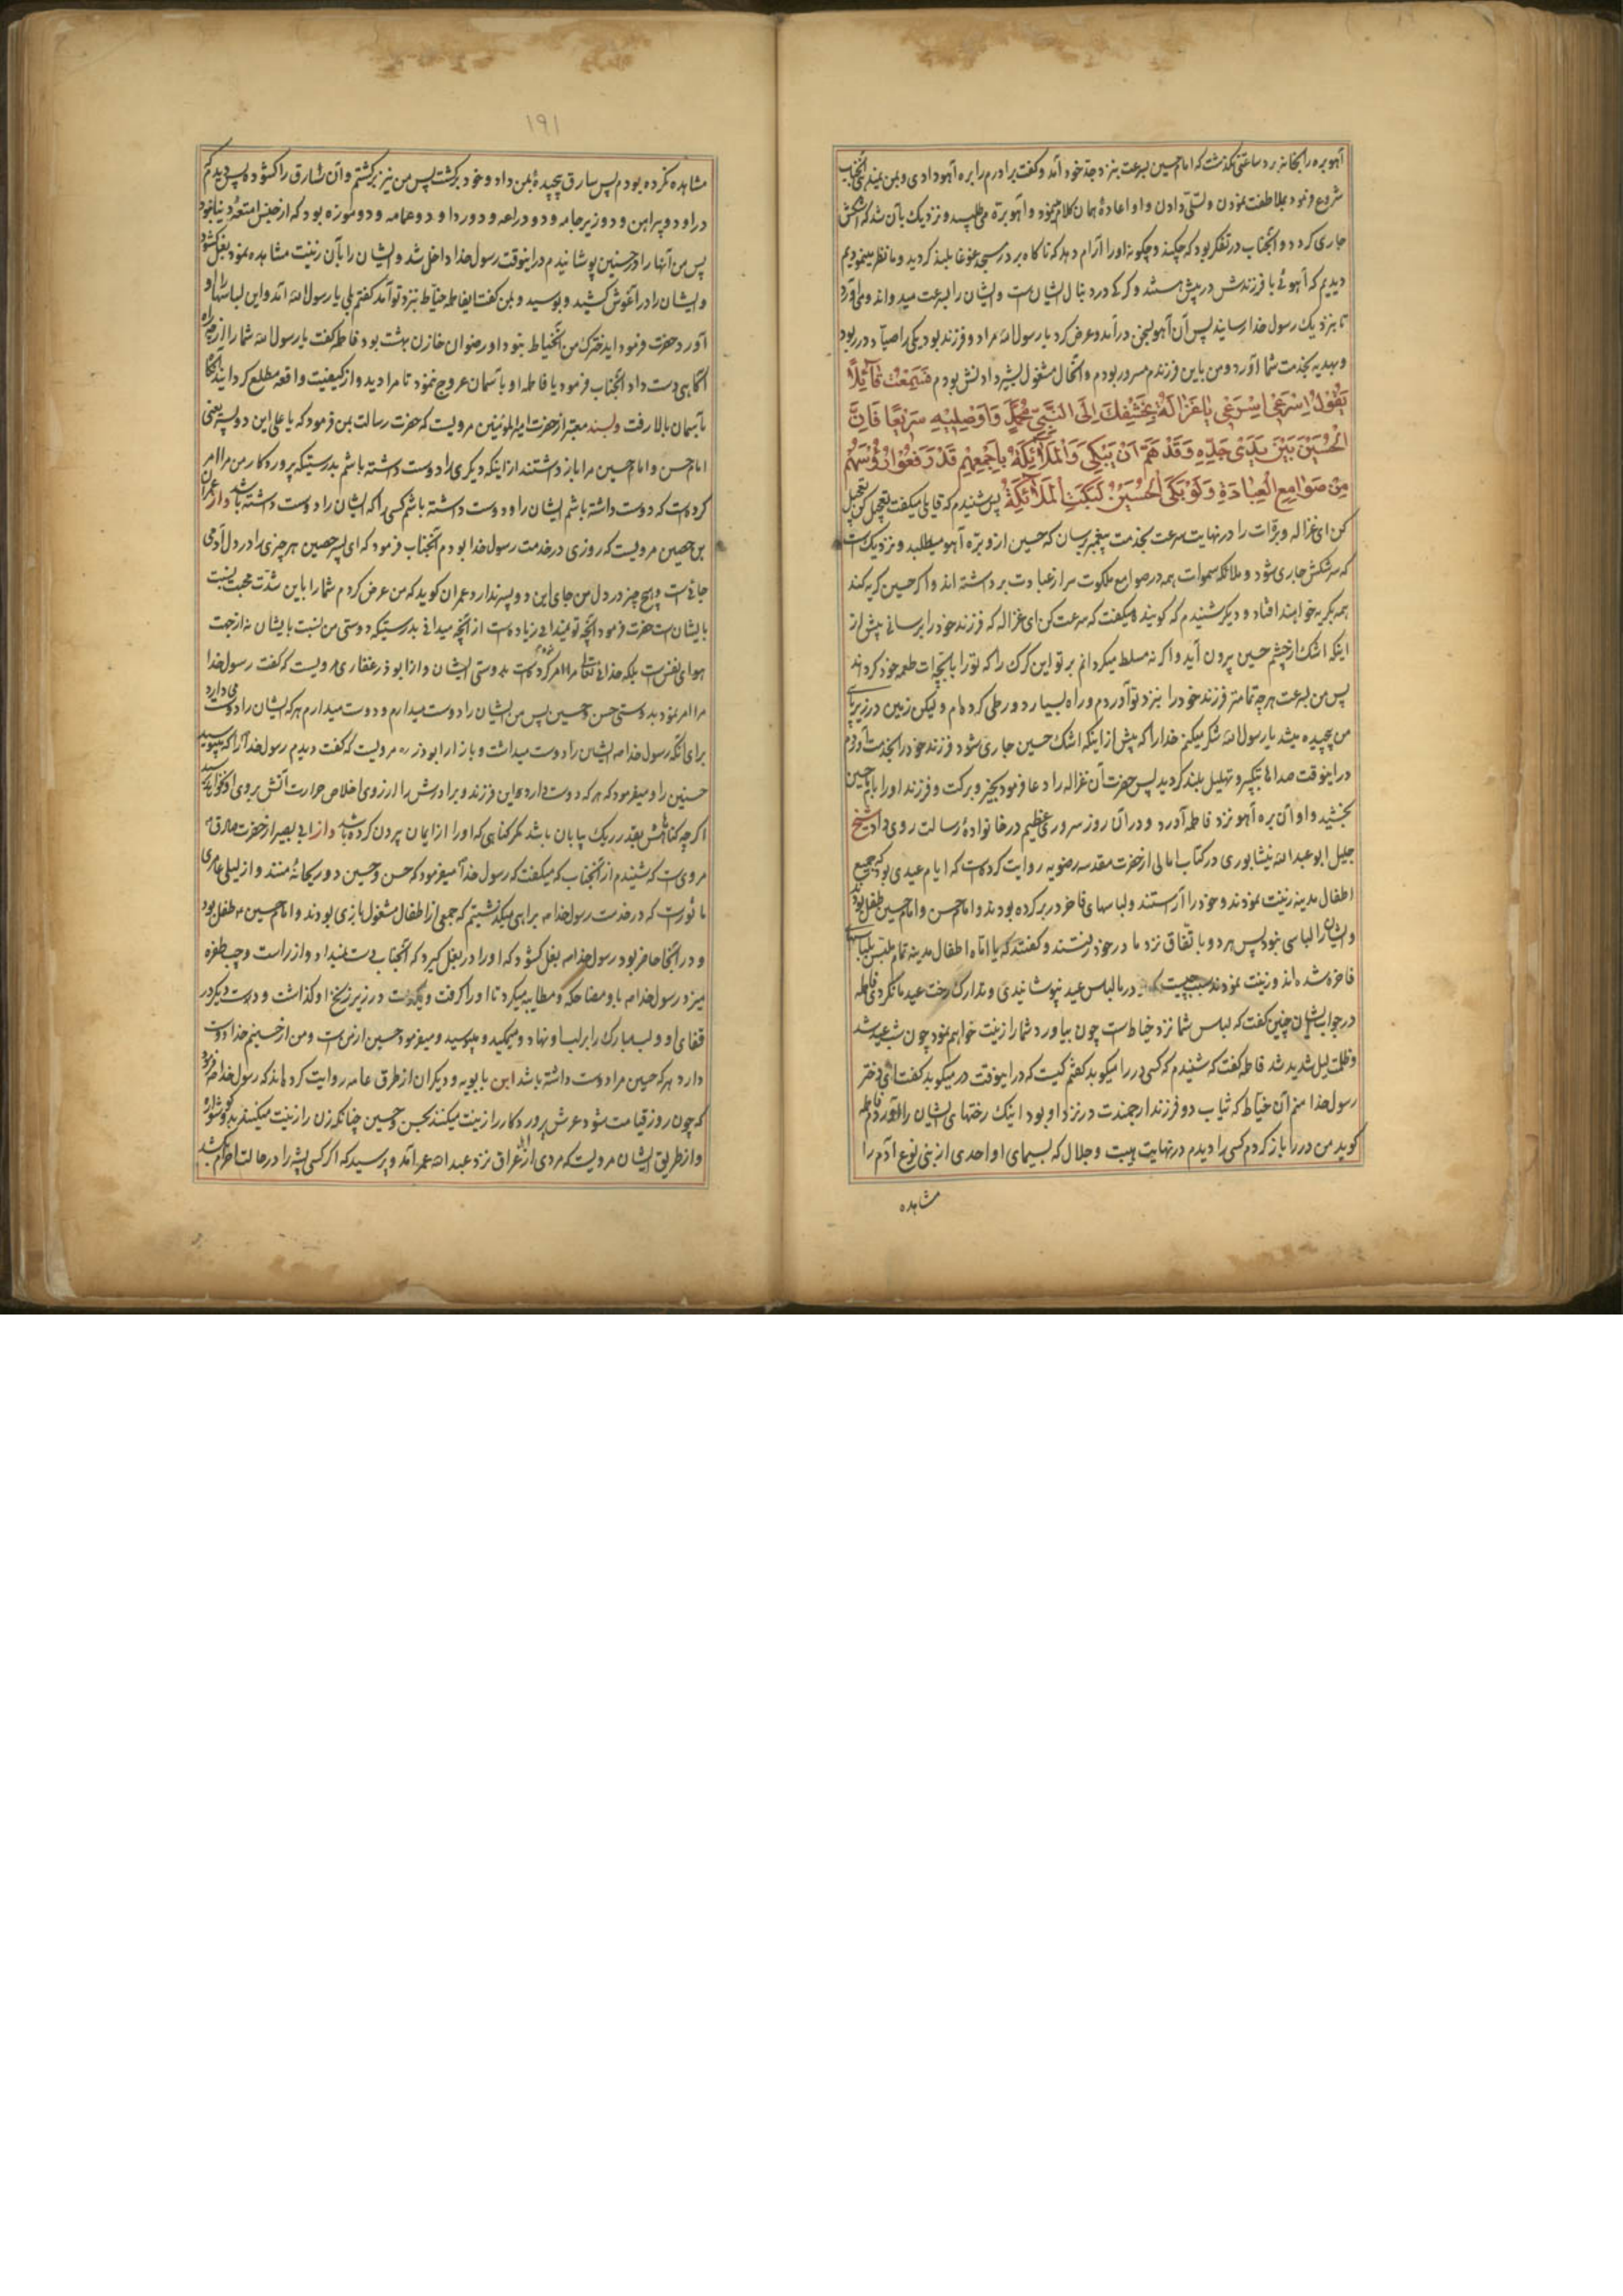 آهو بره را بخانه برد ساعتی نگذشت که امام حسین بسرعت بنزد جد خود آمد و گفت برادرم را بره آهو دادی و بمن نمیدهی آنجناب
شروع فرمود بملاطفت نمودن و تسلی دادن و او اعادهٔ همان کلام مینمود و آهو بره می طلبید و نزدیک بآن شد که اشکش
جاری گردد و آنجناب در تفکر بود که چکند و چگونه او را آرام دهد که ناگاه بر در مسجد غوغا بلند گردید و ما نظر مینمودیم
دیدیم که آهوئی با فرزندش در پیش هستند و گرگی در دنبال ایشان است و ایشان را بسرعت میدواند و می آورد
تا بنزدیک رسول خدا رسانید پس آن آهو بسخن درآمد و عرض کرد یا رسول الله مرا دو فرزند بود یکی را صیاد در ربود
و بهدیه بخدمت شما آورد و من باین فرزندم مسرور بودم و الحال مشغول بشیر دادنش بودم فَسَمِعْتُ قَآئِلًا
یَقُولُ اِسْرَعِی اِسْرَعِی یٰا غَزٰالَةُ بِخَشْفِكَ اِلَی النَّبِیِّ مُحَمَّدٍ وَاَوْصِلِیْهِ سَرِیْعًا فَاِنَّ
الْحُسَیْنَ بَیْنَ یَدَیْ جَدِّهِ وَقَدْ هَمَّ اَنْ یَبْکِیَ وَالْمَلٰآئِكَةُ بِاَجْمَعِهِمْ قَدْ رَفَعُوْا رُؤُسَهُمْ
مِنْ صَوٰامِعِ الْعِبٰادَةِ وَلَوْ بَکَی الْحُسَیْنُ لَبَکَتِ الْمَلٰآئِکَةُ پس شنیدم که قایلی میگفت تعجیل کن تعجیل
کن ای غزاله و بره ات را در نهایت سرعت بخدمت پیغمبر رسان که حسین از او بره آهو میطلبد و نزدیک است
که سرشکش جاری شود و ملائکه سموات همه در صوامع ملکوت سر از عبادت برداشته اند و اگر حسین گریه کند
همه بگریه خواهند افتاد و دیگر شنیدم که گوینده میگفت که سرعت کن ای غزاله که فرزند خود را برسانی پیش از
اینکه اشک از چشم حسین بیرون آید و اگر نه مسلط میگردانم بر تو این گرگ را که تو را با بچه ات طعمه خود گرداند
پس من بسرعت هر چه تمامتر فرزند خود را بنزد تو آوردم و راه بسیار دور طی کرده ام و لیکن زمین در زیر پای
من پیچیده میشد یا رسول الله شکر میکنم خدا را که پیش از اینکه اشک حسین جاری شود فرزند خود را بخدمت آوردم
در اینوقت صداها بتکبیر و تهلیل بلند گردید پس حضرت آن غزاله را دعا فرمود بخیر و برکت و فرزند او را بامام حسین
بخشید و او آن بره آهو نزد فاطمه آورد و در آن روز سروری عظیم در خانوادهٔ رسالت روی داد شیخ
جلیل ابو عبد الله نیشابوری در کتاب امالی از حضرت مقدسه رضویه روایت کرده است که ایام عیدی بود که جمیع
اطفال مدینه زینت نمودند و خود را آراستند و لباسهای فاخر در بر کرده بودند و امام حسن و امام حسین طفل بودند
و ایشان را لباسی نبود پس هر دو باتفاق نزد مادر خود رفتند و گفتند که یا اماه اطفال مدینه تمام ملبس بلباسهای
فاخره شده اند و زینت نمودند سبب چیست که در ما لباس عید نپوشانیدی و تدارک رخت عید ما نکردی فاطمه
در جواب ایشان چنین گفت که لباس شما نزد خیاط است چون بیاورد شما را زینت خواهم نمود چون شب عید شد
و ظلمت لیل شدید شد فاطمه گفت که شنیدم که کسی در را میکوبد گفتم کیست که در اینوقت در میکوبد گفت ای دختر
رسول خدا منم آن خیاط که ثیاب دو فرزند ارجمندت در نزد او بود اینک رختهای ایشان را آورده ام فاطمه
گوید من در را باز کردم کسی را دیدم در نهایت هیبت و جلال که بسیمای او احدی از بنی نوع آدم را
مشاهده
۱۹۱
مشاهده نکرده بودم پس سارق پیچیدهٔ بمن داد و خود برگشت پس من نیز برگشتم و آن سارق را گشوده پس دیدم که
در او دو پیراهن و دو زیر جامه و دو دراعه و دو ردا و دو عمامه و دو موزه بود که از جنس امتعهٔ دنیا نبود
پس من آنها را در حسنین پوشانیدم در اینوقت رسول خدا داخل شد و ایشان را بآن زینت مشاهده نمود بغل گشود
و ایشان را در آغوش کشید و بوسید و بمن گفت ایفاطمه خیاط بنزد تو آمد گفتم بلی یا رسول الله آمد و این لباسها را او
آورد حضرت فرمود ایدخترک من آنخیاط نبود او رضوان خازن بهشت بود فاطمه گفت یا رسول الله شما را از چه راه
آگاهی دست داد آنجناب فرمود یا فاطمه او بآسمان عروج ننمود تا مرا دید و از کیفیت واقعه مطلع گردانید آنگاه
بآسمان بالا رفت ولبسند معتبر از حضرت امیرالمؤمنین مرویست که حضرت رسالت بمن فرمود که یا علی این دو پسر یعنی
امام حسن و امام حسین مرا باز داشتند از اینکه دیگری را دوست داشته باشم بدرستیکه پروردگار من مرا امر
کرده است که دوست داشته باشم ایشان را و دوست داشته باشم کسی را که ایشان را دوست داشته باشد و از عمران
بن حصین مرویست که روزی در خدمت رسول خدا بودم آنجناب فرمود که ای پسر حصین هر چیزی را در دل آدمی
جائی است و هیچ چیز در دل من جای این دو پسر ندارد عمران گوید که من عرض کردم شما را باین شدت محبت نسبت
بایشان است حضرت فرمود آنچه تو نمیدانی زیاده است از آنچه میدانی بدرستیکه دوستی من نسبت بایشان نه از جهت
هوای نفس است بلکه خدای تعالی مرا امر کرده است بدوستی ایشان و از ابوذر غفاری مرویست که گفت رسول خدا
مرا امر نمود بدوستی حسن و حسین پس من ایشان را دوست میدارم و دوست میدارم هر که ایشان را دوست می دارد
برای آنکه رسول خدا ایشان را دوست میداشت و باز از ابوذر مرویست که گفت دیدم رسول خدا را که میبوسید
حسنین را و میفرمود که هر که دوست دارد این فرزند و برادرش را از روی اخلاص حرارت آتش بروی او نخواهد رسید
اگر چه گناهش بقدر ریک بیابان باشد مگر گناهی که او را از ایمان بیرون کرده باشد و از ابی بصیر از حضرت صادق
مروی است که شنیدم از آنجناب که میگفت که رسول خدا میفرمود که حسن و حسین دو ریحانهٔ منند و از لیلی عامری
ماثورست که در خدمت رسول خدا براهی میگذشتیم که جمعی از اطفال مشغول بازی بودند و امام حسین طفل بود
و در آنجا حاضر بود رسول خدا بغل گشود که او را در بغل گیرد که آنجناب دست نمیداد و از راست و چپ طفره
میزد رسول خدا با او مضاحکه و مطایبه میکرد تا او را گرفت و یکدست در زیر زنخ او گذاشت و دست دیگر در
قفای او و لب مبارک را بر لب او نهاد و میمکید و میبوسید و میفرمود حسین از من است و من از حسینم خدا دوست
دارد هر که حسین مرا دوست داشته باشد ابن بابویه و دیگران از طرق عامه روایت کرده اند که رسول خدا فرمود
که چون روز قیامت شود عرش پروردگار را زینت میکنند بحسن و حسین چنانکه زن را زینت میکنند بدو گوشواره
و از طریق ایشان مرویست که مردی از اهل عراق نزد عبد الله عمر آمد و پرسید که اگر کسی پشه را در حالت احرام بکشد